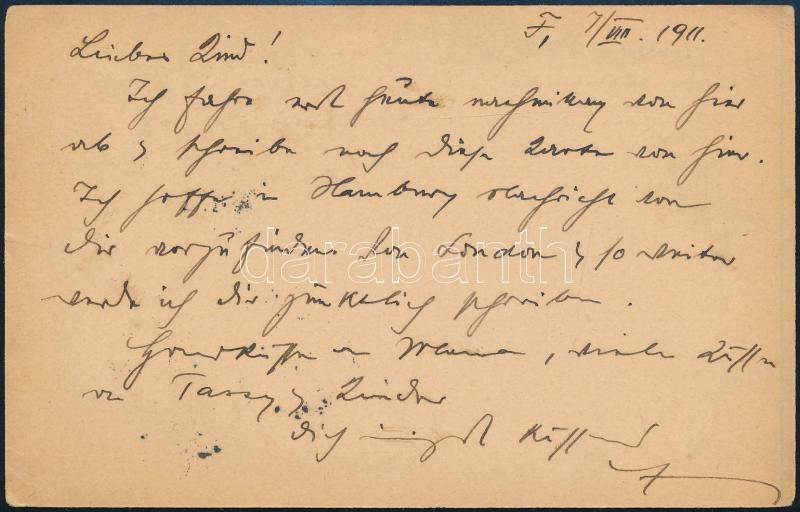 F, 7/VIII. 1911.
Liebes Kind!
Ich fahre erst heute nachmittag von hier
ab & schreibe noch diese Karte von hier.
Ich hoffe in Hamburg Nachricht von
dir vorzufinden. Von London & so weiter
werde ich dir pünktlich schreiben.
Handküsse an Mama, viele Küsse
an Tassy & Kinder
dich innigst küssend
darabanth